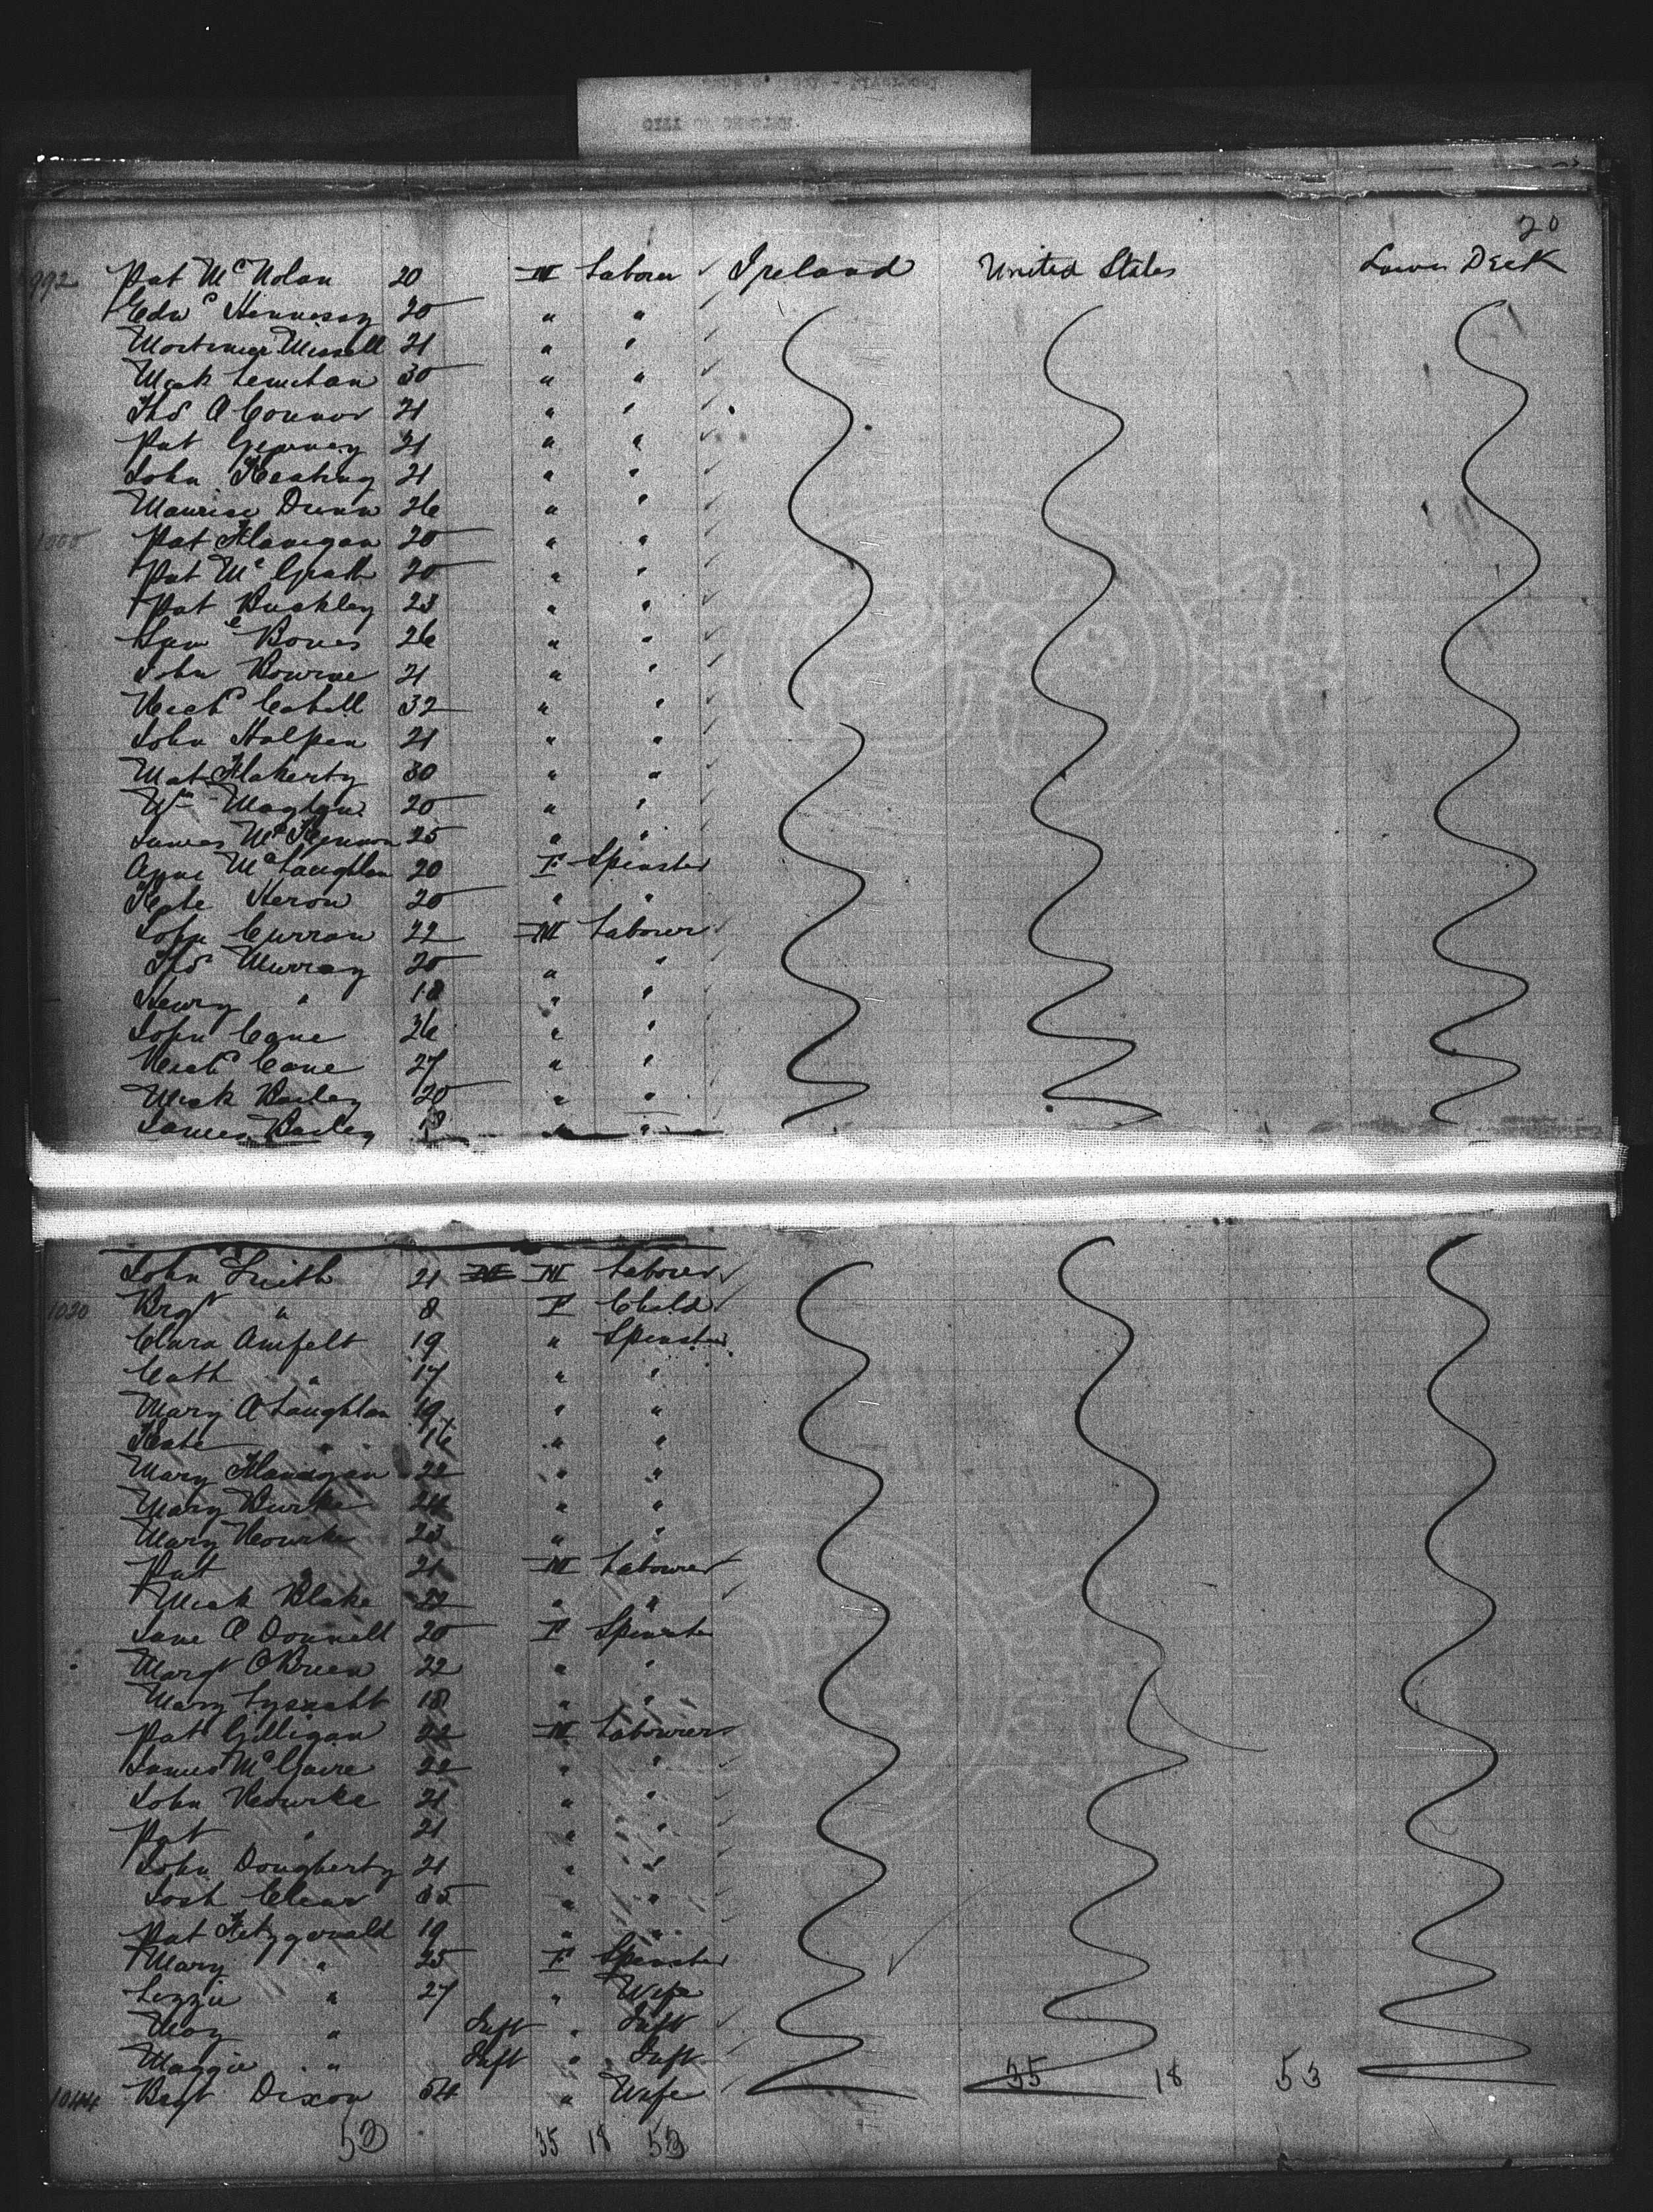 20
992 Pat McNolan 20 M Laborer Ireland United States Lower Deck
Edwd Hennessy 20 " "
Mortimer 21 " "
Mick Lenehan 30 " "
Thos O Connor 21 " "
Pat 21 " "
John Keating 21 " "
Maurice Dunn 26 " "
1000 Pat Flanigan 20 " "
Pat McGrath 20 " "
Pat Buckley 23 " "
Saml 26 " "
John Bourne 21 " "
Richd Cahill 32 " "
John Halpen 21 " "
Mat Flaherty 30 " "
Wm 20 " "
James McKennon 25 " "
Anne McLaughlan 20 F Spinster
Kate Heron 20 " "
John Curran 22 M Laborer
Thos Murray 20 " "
Henry " 18 " "
John Cane 26 " "
Richd Cane 27 " "
Mick Bailey 20 " "
James Bailey 18 " "
John Smith 21 M M Laborer
1020 Brgt " 8 F Child
Clara Amfelt 19 " Spinster
Cath " 17 " "
Mary O Laughlan 19 " "
Kate " 16 " "
Mary Flanagan 22 " "
Mary Burke 24 " "
Mary Rourke 23 " "
Pat " 21 M Labourer
Mick Blake 22 " "
Jane O Donnell 20 F Spinster
Margt O Brien 22 " "
Mary Lysaght 18 " "
Pat Gilligan 22 M Labourer
James McGuire 22 " "
John Rourke 21 " "
Pat " 21 " "
John Dougherty 21 " "
Josh Clear 35 " "
Pat Fitzgerald 19 " "
Mary " 25 F Spinster
Lizzie " 27 " Wife
May " Inft " Inft
Maggie " Inft " Inft
1044 Brgt Dixon 54 " Wife 35 18 53
53 35 18 53